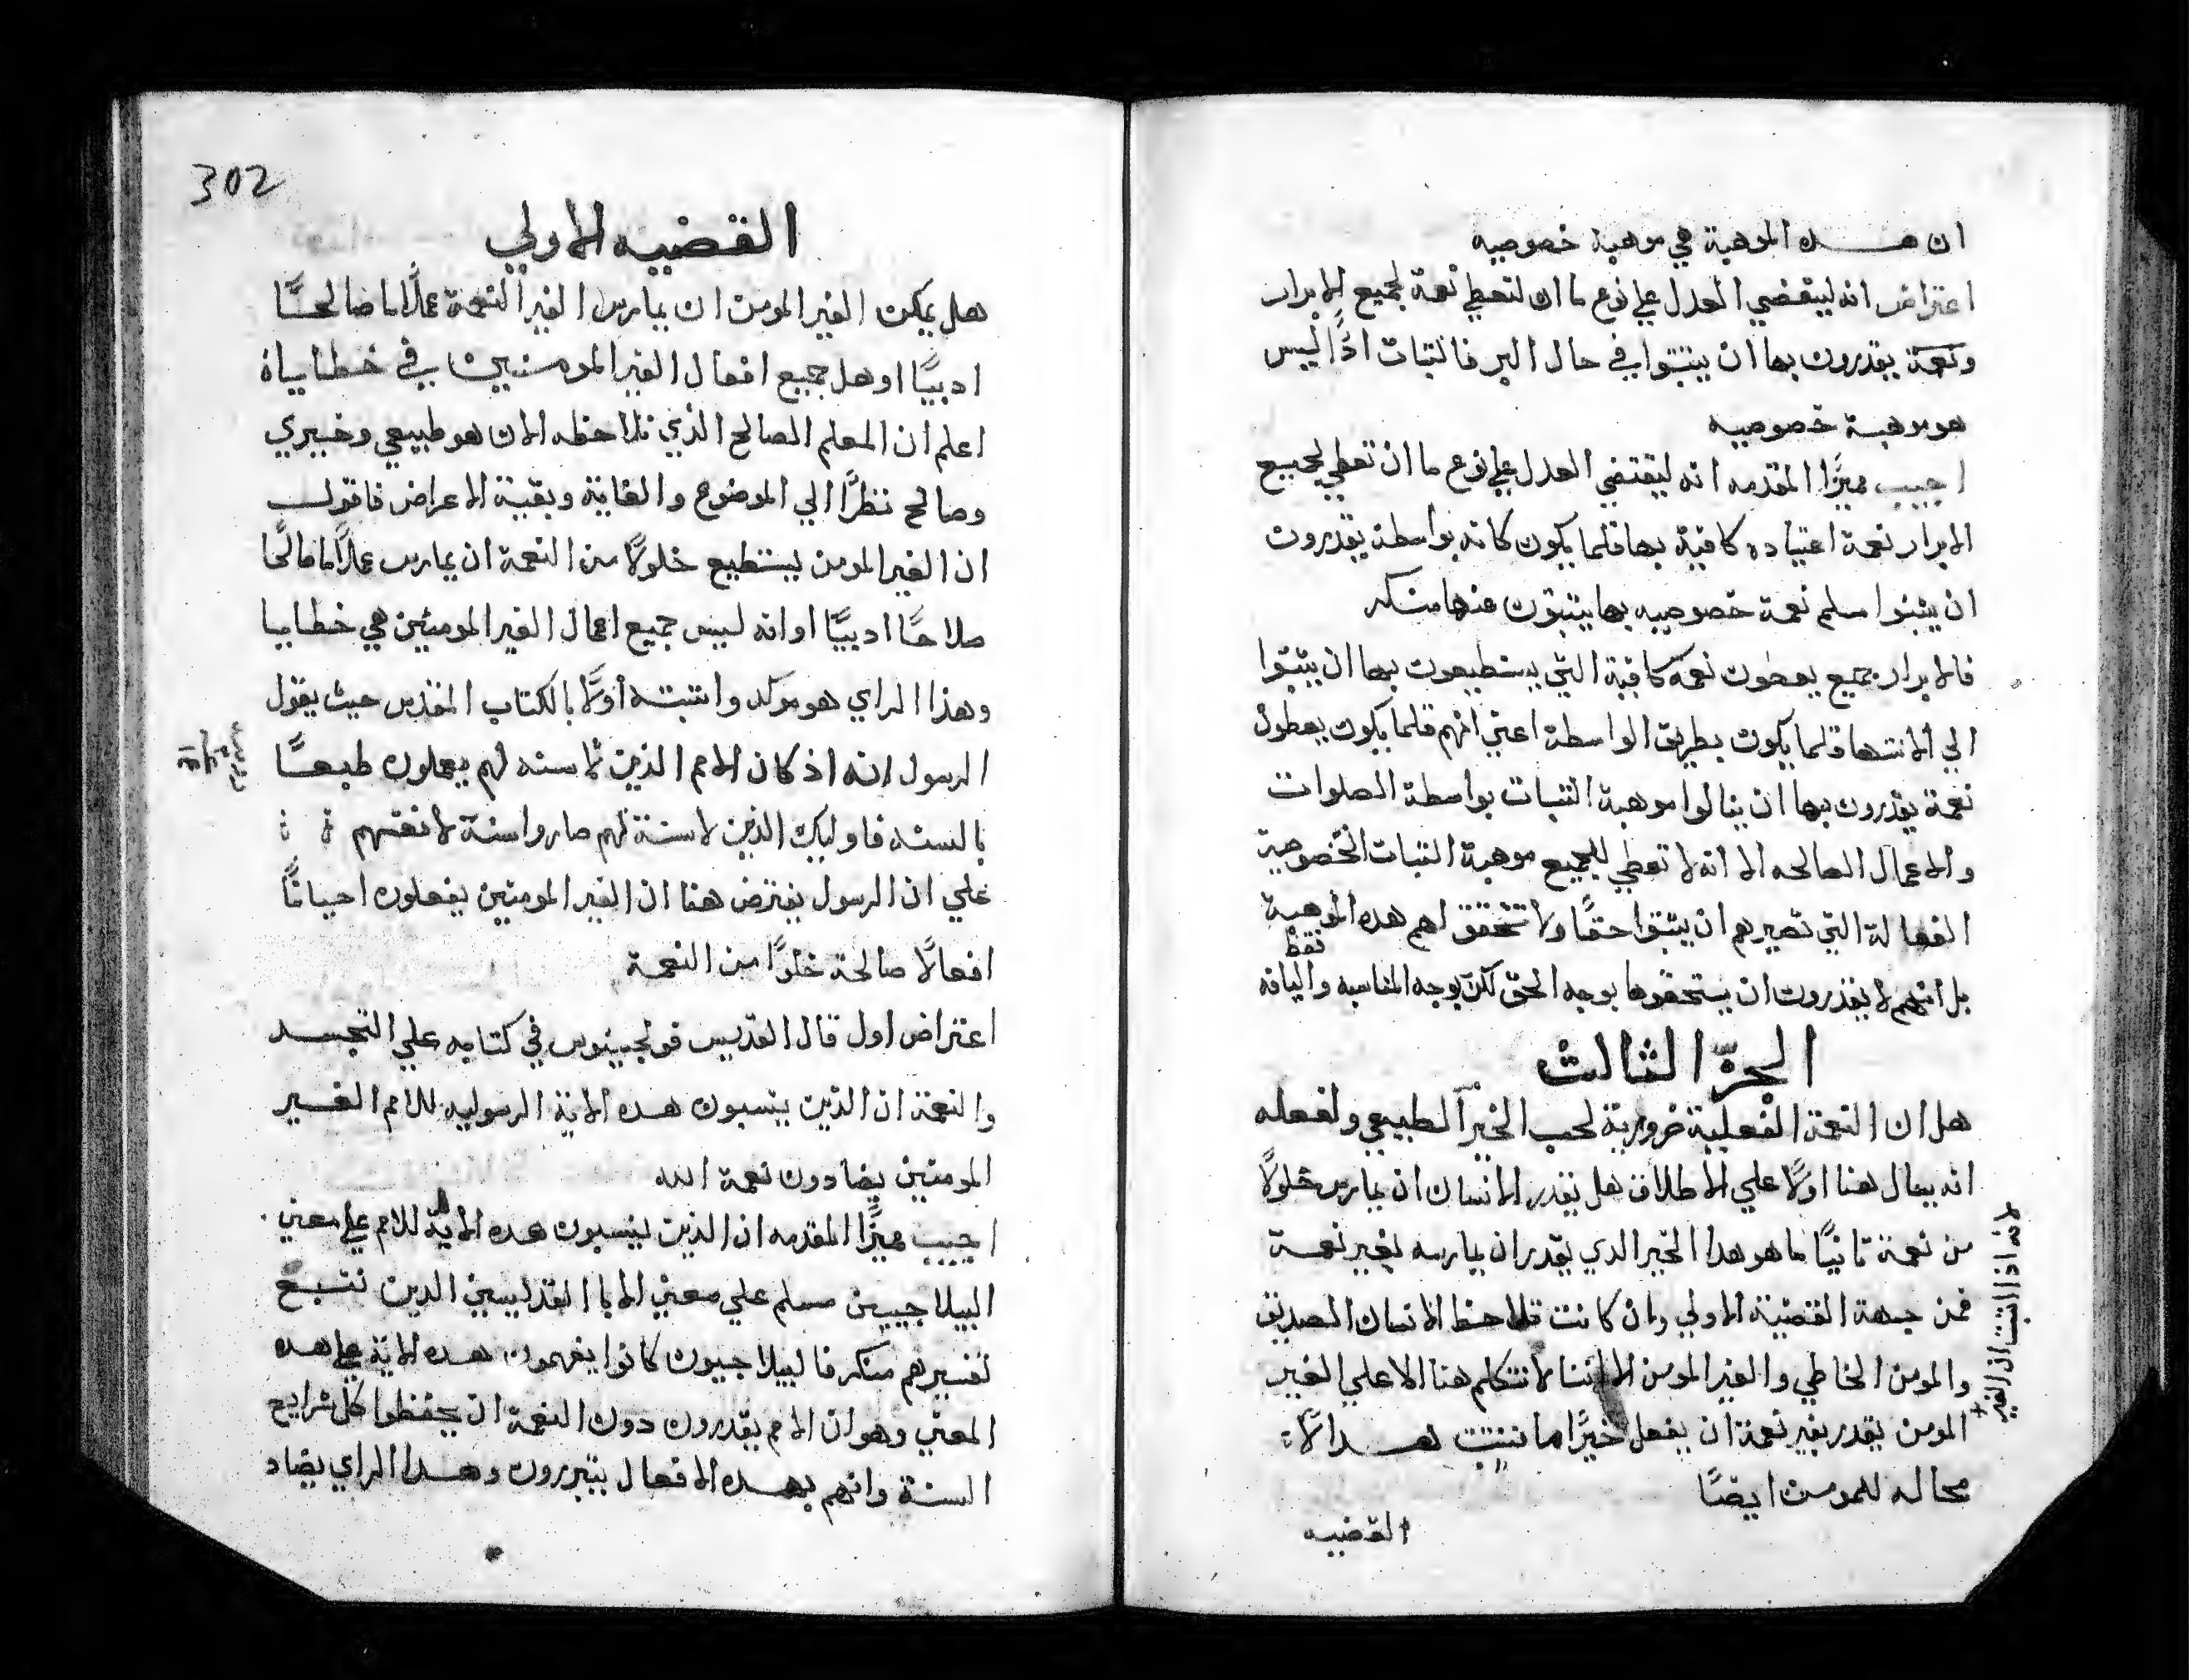 ان هـــذه الموهبة هي موهبة خصوصيه
اعتراض انه ليقتضي العدل علي نوع ما ان لتعطي نعمة لجميع الابرار
ونعمة يقدرون بها ان يثبتوا في حال البر فالثبات اذًا ليس
هو موهبة خصوصيه
اجيب مميزًا المقدمه انه ليقتضي العدل علي نوع ما ان تعطي لجميع
الابرار نعمة اعتياديه كافية بها قلما يكون كانه بواسطة يقدرون
ان يثبتوا مسلم نعمة خصوصيه بها يثبتون منها منكر
فالابرار جميع يعطون نعمه كافية التي يستطيعون بها ان يثبتوا
الي الانتها قلما يكون بطريق الواسطة اعني انهم قلما يكون يعطون
نعمة يقدرون بها ان ينالوا موهبة الثبات بواسطة الصلوات
والاعمال الصالحه الا انه لا تعطي للجميع موهبة الثبات الخصوصية
الفعالة التي تصيرهم ان يثبتوا حقًا ولا تتحقق لهم هذه الموهبة
فقط
بل انهم لا يقدرون ان يستحقوها بوجه الحق لكن بوجه المناسبه واللياقه
الجزّ الثالث
هل ان النعمة الفعلية ضرورية لحب الخير الطبيعي ولفعله
انه يسال هنا اولًا علي الاطلاق هل يقدر الانسان ان يمارس خلوًا
من نعمة ثانيًا ما هو هدا الخير الدي يقدر ان يمارسه بغير نعمة
فمن جهة القضية الاولي وان كانت تلاحظ الانسان الصديق
والمومن الخاطي والغير المومن الا اننا لا نتكلم هنا الا علي الغير
المومن يقدر بغير نعمة ان يفعل خيرًا ما نثبت هـــدا لًا
محاله للمومن ايضًا
لانه اذا اثبتنا ان الغير +
القضيه
302
القضيه الاولي
هل يمكن الغير المومن ان يمارس الغير النعمة عملًا ما صالحًا
ادبيًا اوهل جميع افعال الغير المومنين هي خطاياة
اعلم ان المعلم الصالح الذي نلاحظه الان هو طبيعي وخيري
وصالح نظرًا الي الموضوع والغاية وبقية الاعراض فاقول
ان الغير المومن يستطيع خلوًا من النعمة ان يمارس عملًا ما مالحًا
صلاحًا ادبيًا او انه ليس جميع اعمال الغير المومنين هي خطايا
وهذا الراي هو موكد واثبته اولًا بالكتاب المقدس حيث يقول
الرسول انه اذ كان الامم الذين لا سنه لهم يعملون طبعًا
بالسنه فاوليك الذين لا سنة لهم صاروا سنة لانفسهم
علي ان الرسول يفترض هنا ان الغير المومنين يفعلون احيانًا
افعالًا صالحة خلوًا من النعمة
اعتراض اول قال القديس فولجينوس في كتابه علي التجسد
والنعمة ان الذين ينسبون هده الاية الرسوليه للامم الغـــير
المومنين يضادون نعمة الله
اجيب مميزًا المقدمه ان الذين ينسبون هده الاية للامم علي معني
البيلاجيين مسلم علي معني الابا القديسين الدين نتبع
تفسيرهم منكر فالبيلاجيون كانوا يفهمون هده الاية علي هده
المعني وهو ان الامم يقدرون دون النعمة ان يحفظوا كل شرايع
السنة وانهم بهـــده الافعال يتبررون وهـــدا الراي يضاد